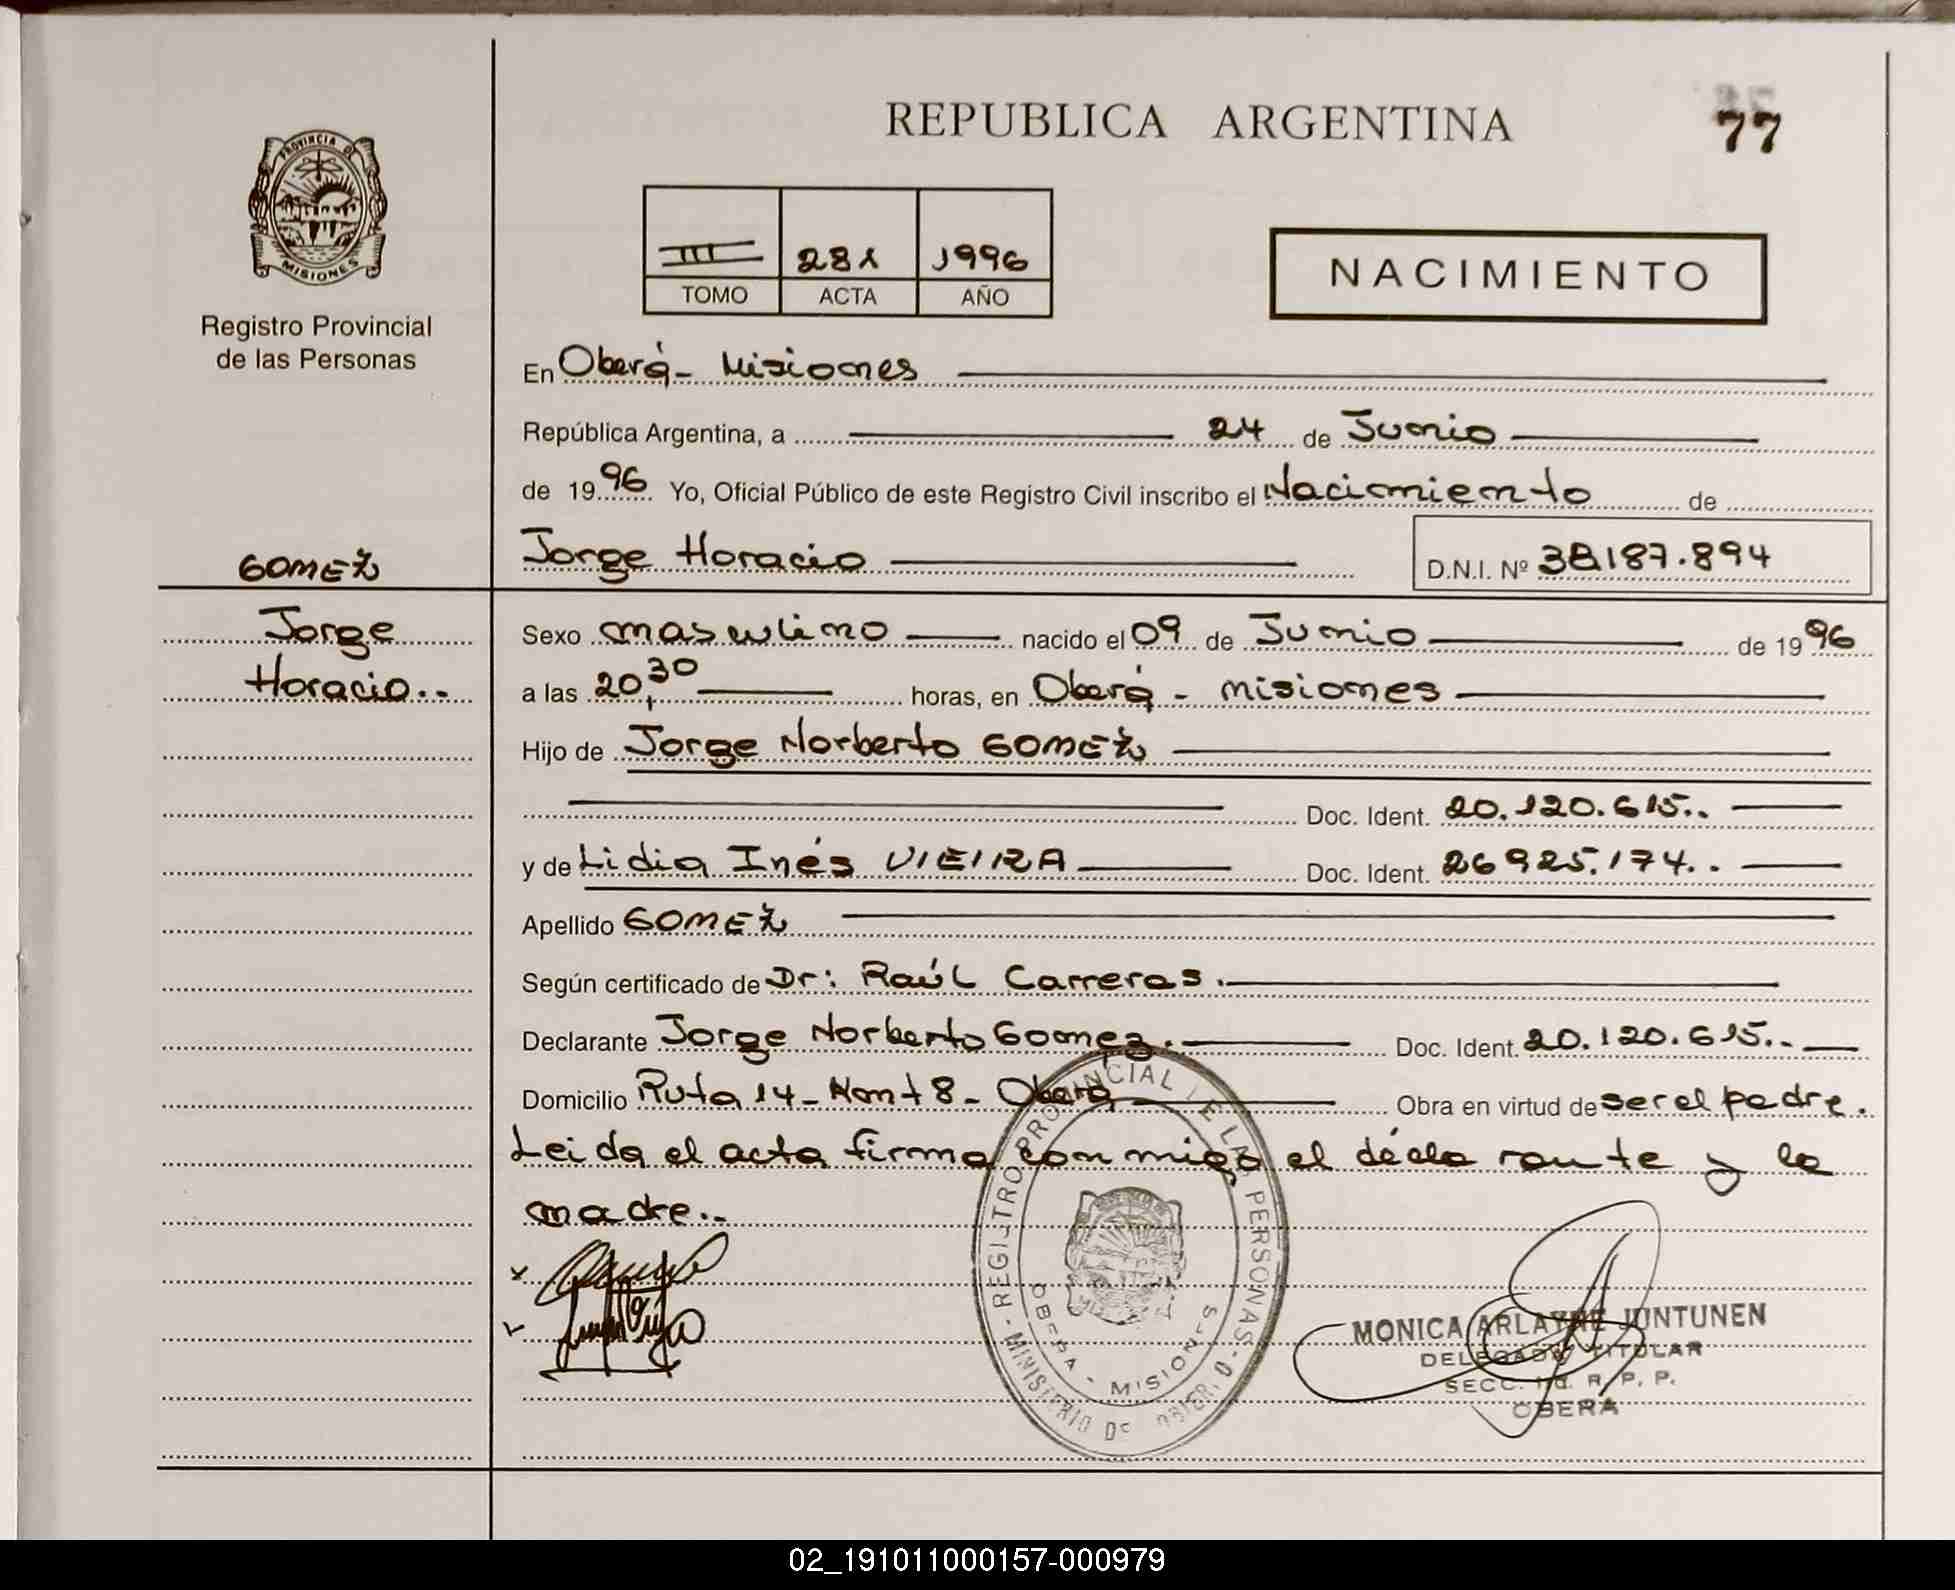 REPUBLICA ARGENTINA
77
PROVINCIA DE
MISIONES
Registro Provincial
de las Personas
III 281 1996
TOMO ACTA AÑO
NACIMIENTO
En Oberá - Misiones
República Argentina, a 24 de Junio
de 1996 Yo, Oficial Público de este Registro Civil inscribo el Nacimiento de
GOMEZ
Jorge Horacio D.N.I. Nº 38187.894
Jorge
Horacio..
Sexo masculino nacido el 09 de Junio de 1996
a las 20,30 horas, en Oberá - misiones
Hijo de Jorge Norberto GOMEZ
Doc. Ident. 20.120.615..
y de Lidia Inés VIEIRA Doc. Ident. 26925.174..
Apellido GOMEZ
Según certificado de Dr: Raúl Carreras.
Declarante Jorge Norberto Gomez. Doc. Ident. 20.120.615..
Domicilio Ruta 14 - Km t 8 - Oberá Obra en virtud de ser el padre.
Leida el acta firma conmigo el declarante y la
madre..
REGISTRO PROVINCIAL DE LAS PERSONAS - MINISTERIO DE GOBIERNO -
OBERA - MISIONES
MONICA ARLAYNE JUNTUNEN
DELEGADO TITULAR
SECC. R. P. P.
OBERA
02_191011000157-000979